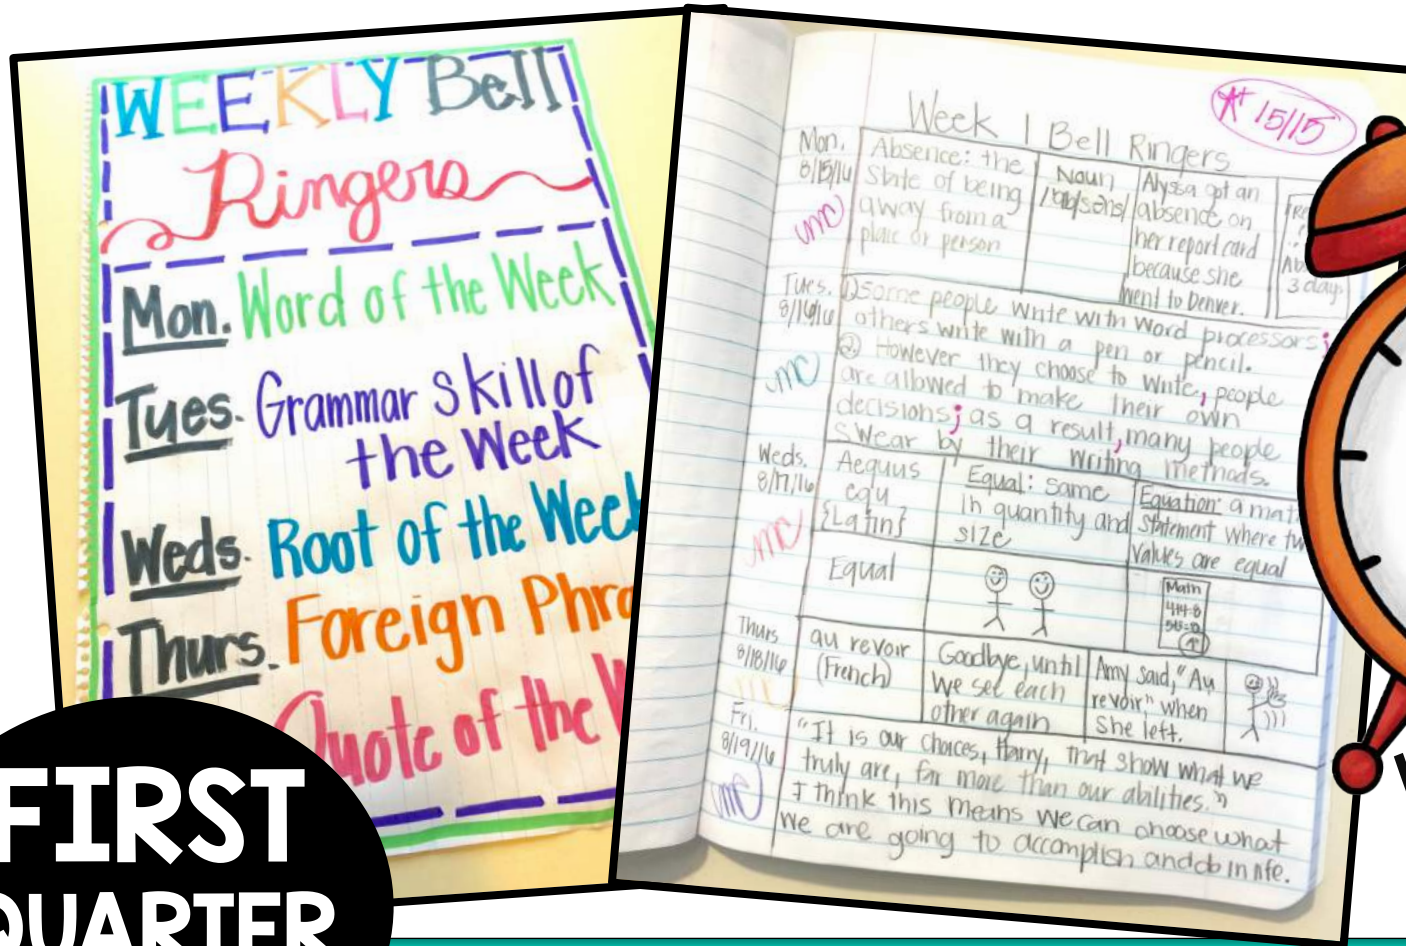 WEEKLY Bell
Ringers
Mon. Word of the Week
Tues. Grammar Skill of
the Week
Weds. Root of the Week
Thurs. Foreign Phra
Quote of the W
FIRST
QUARTER
Week 1 Bell Ringers
A+ 15/15
Mon.
8/15/16
Absence: the
State of being
away from a
place or person
Noun
Alyssa got an
absence on
her report card
because she
went to Denver.
3 days
Tues.
8/16/16
① Some people write with word processors;
others write with a pen or pencil.
② However they choose to write, people
are allowed to make their own
decisions; as a result, many people
swear by their writing methods.
Weds.
8/17/16
Aequus
equ
{Latin}
Equal: same
in quantity and
size
Equation: a mat
statement where tw
values are equal
Equal
Math
Thurs
8/18/16
au revoir
(French)
Goodbye, until
we see each
other again
Amy said, "Au
revoir" when
she left.
Fri.
8/19/16
"It is our choices, Harry, that show what we
truly are, far more than our abilities."
I think this means we can choose what
we are going to accomplish and do in life.